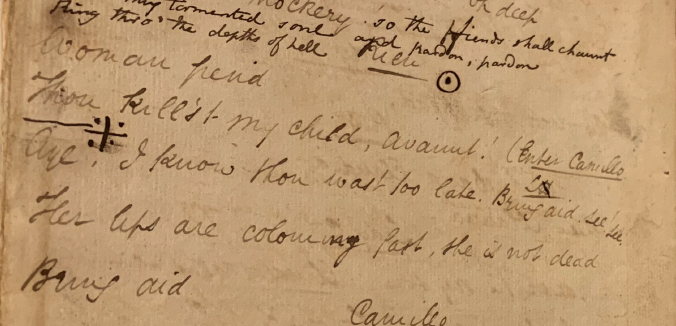 mockery! so the fiends shall chaunt
my tormented soul and pardon, pardon
thro' the depths of hell
Woman fiend
Thou kill'st my child, avaunt! (Enter Camillo
Aye, I know thou wast too late. Bring aid, see! see,
Her lips are colouring fast, she is not dead
Bring aid
Camillo